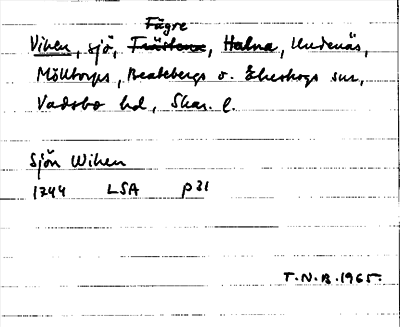 Fägre
Viken, sjö, Fröstena, Halna, Undenäs,
Mölltorps, Beatebergs o. Ekeskogs snr,
Vadsbo hd, Skar. l.
Sjön Wiken
1744 LSA p 21
T.N.B. 1965.